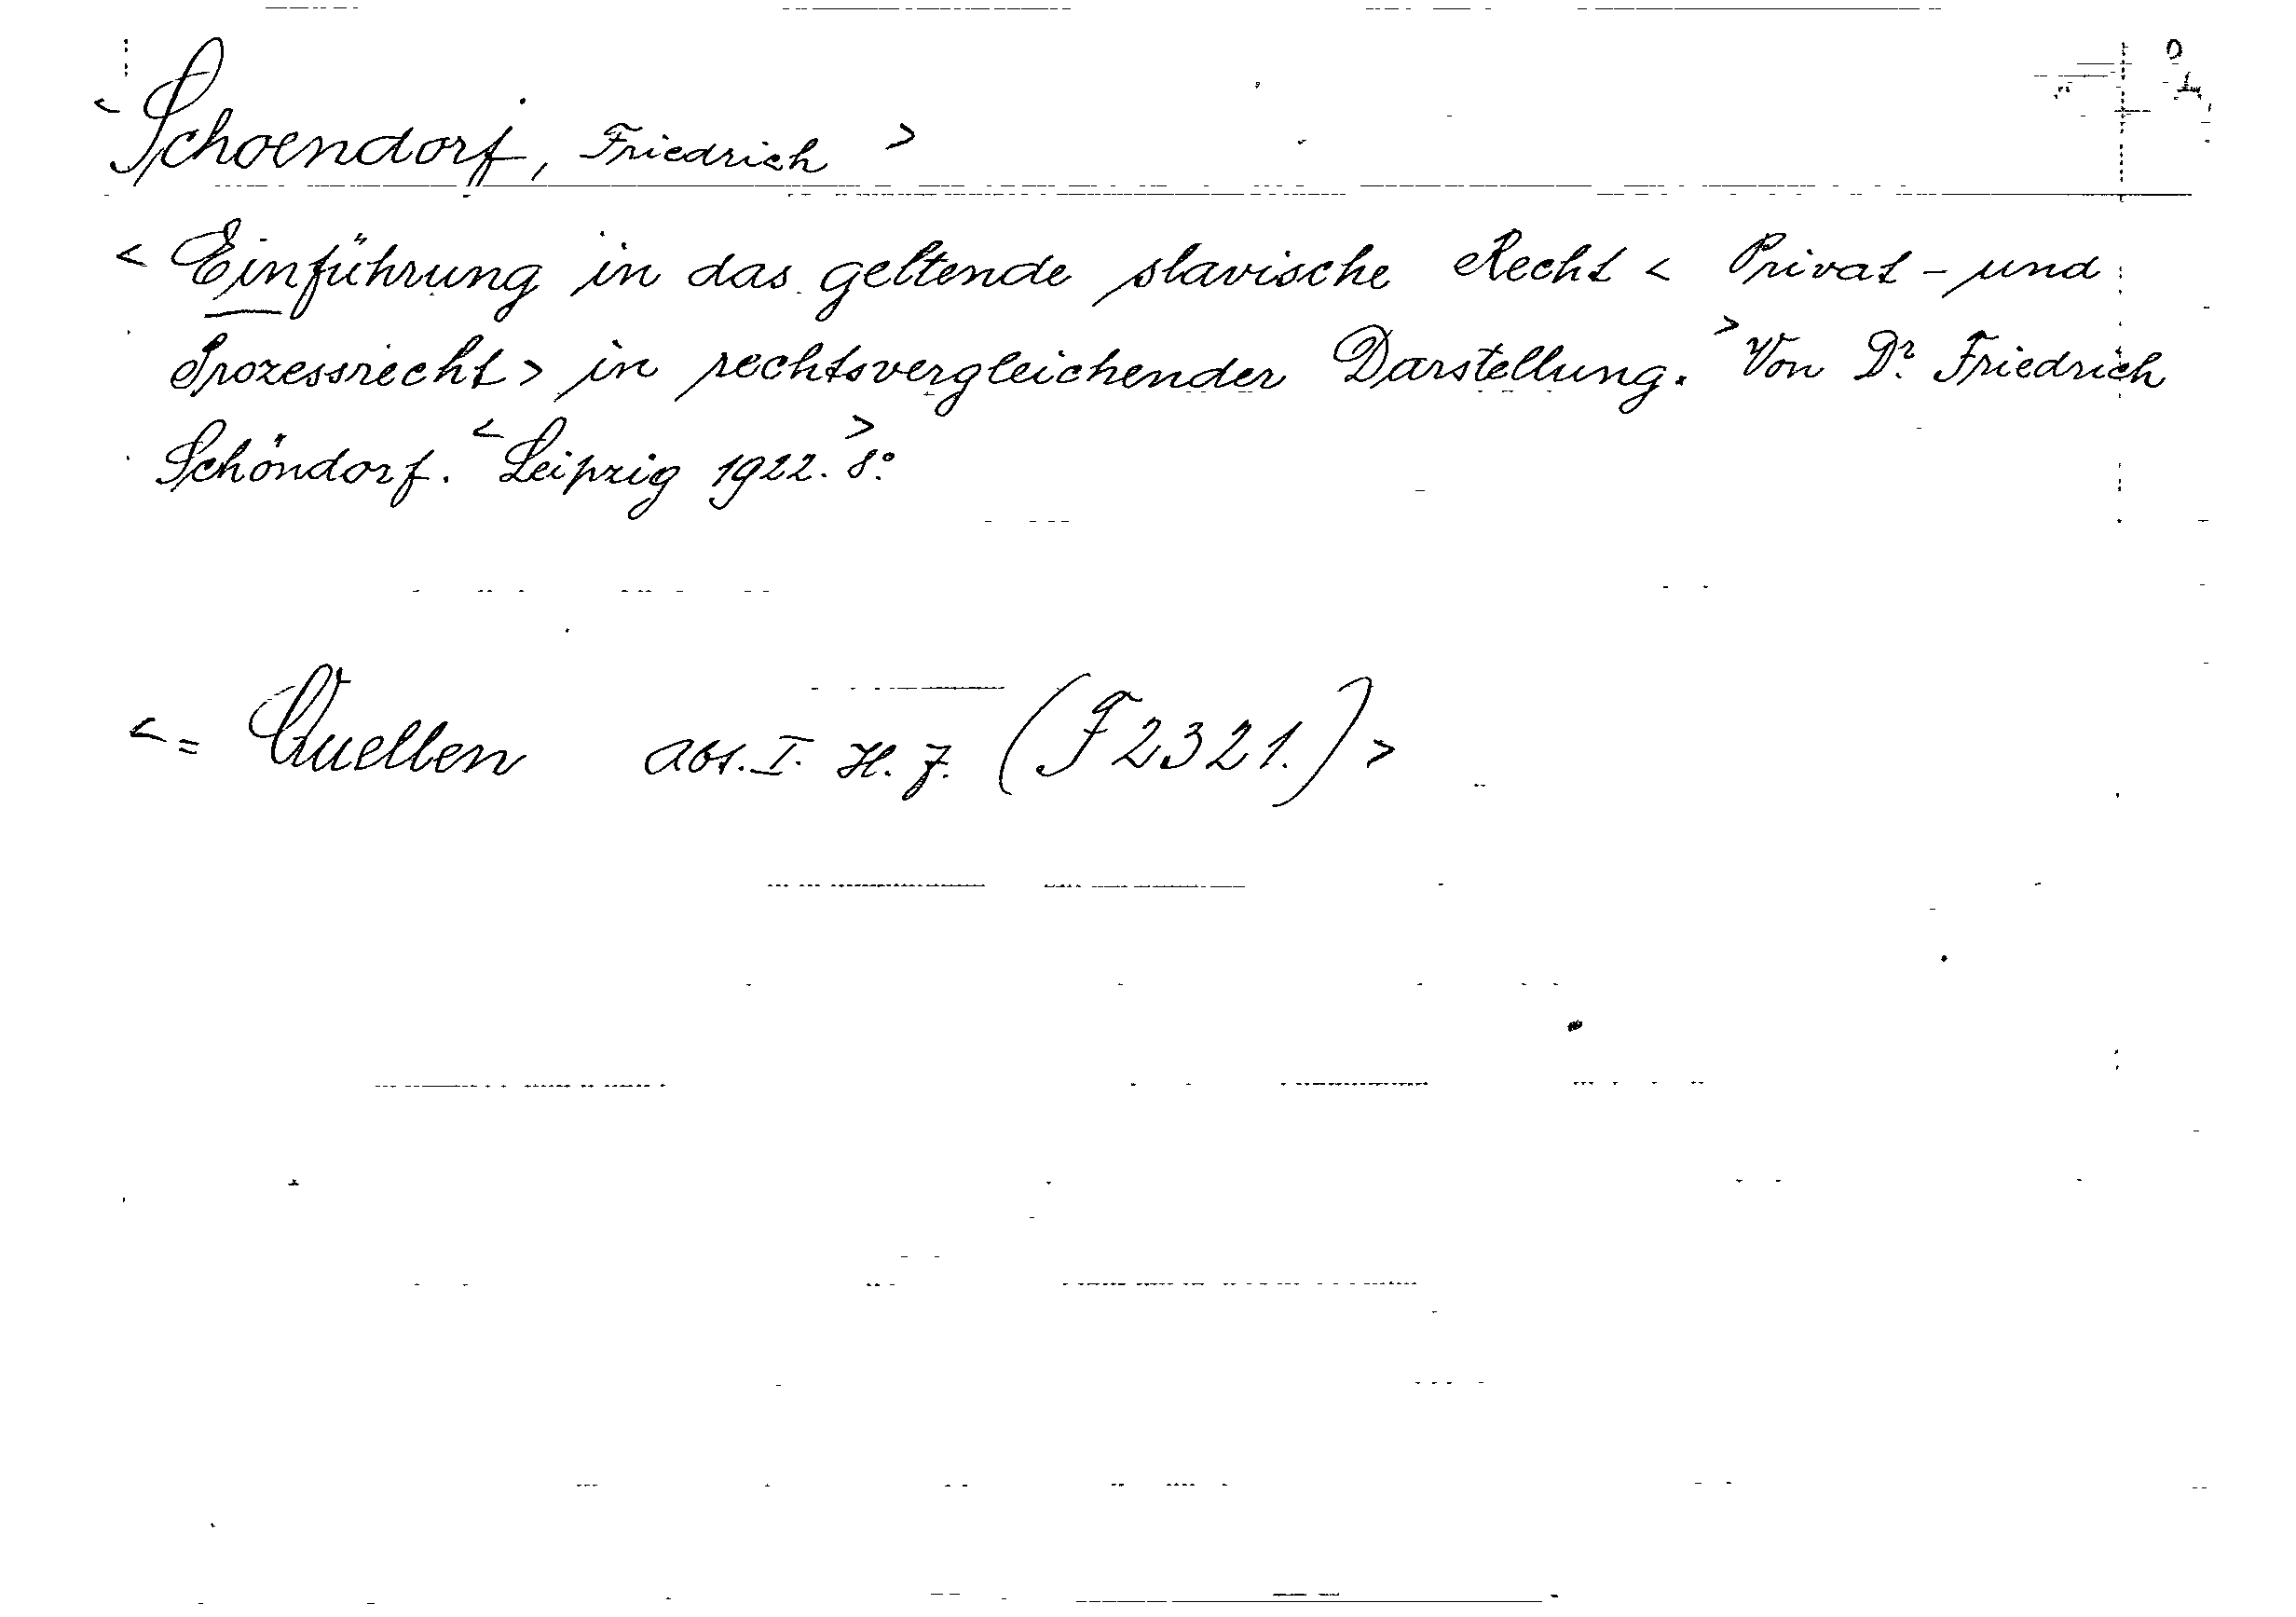 < Schoendorf, Friedrich >
< Einführung in das geltende slavische Recht < Privat - und
Prozessrecht > in rechtsvergleichender Darstellung. > Von Dr. Friedrich
Schöndorf. < Leipzig 1922. > 8º
< = Quellen Abt. I. H. 7. (F 2321.) >